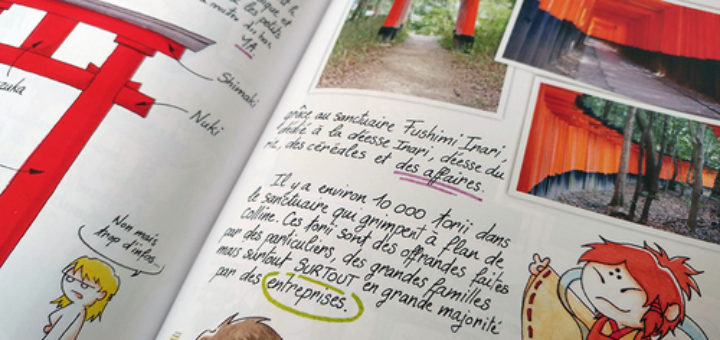 et
les potets
du bas.
YA
Shimaki
Nuki
Non mais
trop d'infos...
grâce au sanctuaire Fushimi Inari,
dédié à la déesse Inari, déesse du
riz, des céréales et des affaires.
Il y a environ 10 000 torii dans
le sanctuaire qui grimpent à flan de
colline. Ces torii sont des offrandes faites
par des particuliers, des grandes familles
mais surtout SURTOUT en grande majorité
par des entreprises.